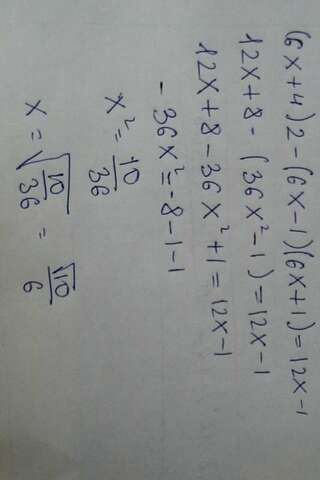 (6x+4)2-(6x-1)(6x+1)=12x-1
12x+8-(36x²-1)=12x-1
12x+8-36x²+1=12x-1
-36x²=-8-1-1
x²=10/36
x=√10/36 = √10/6